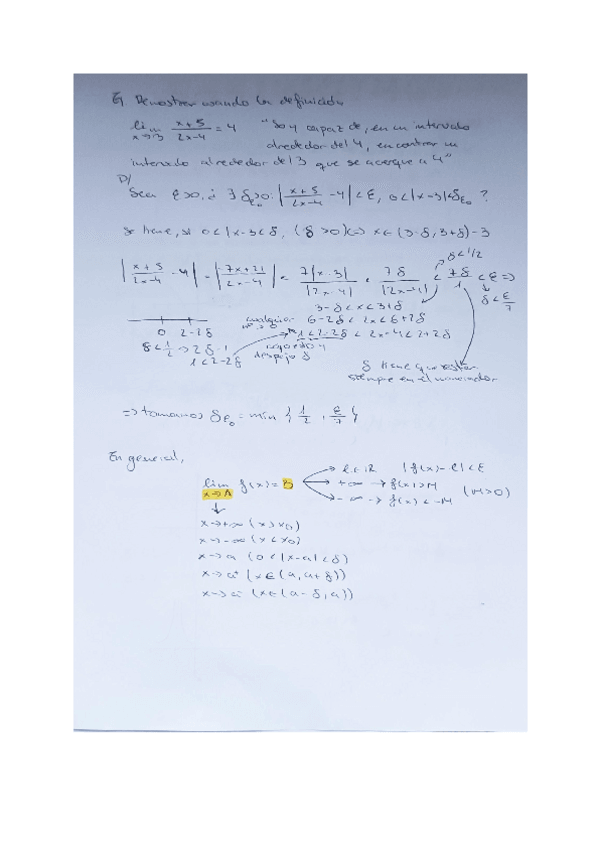 Ej Demostrar usando la definición
lim x→3 x+5/2x-4 = 4 "Soy capaz de, en un intervalo
alrededor del 4, encontrar un
intervalo alrededor del 3 que se acerque a 4"
D/
Sea ε>0, ¿ ∃ δε₀>0: |x+5/2x-4 - 4| < ε, 0<|x-3|<δε₀ ?
Se tiene, si 0<|x-3<δ, (δ>0) <=> x∈(3-δ, 3+δ)-3
δ<1/2
|x+5/2x-4 - 4| = |7x+21/2x-4| = 7|x-3|/|2x-4| < 7δ/|2x-4| < 7δ/1 < ε =>
δ<ε/7
3-δ<x<3+δ
6-2δ<2x<6+2δ
cualquier nº > 0
0 2-2δ
1<2-2δ<2x-4<2+2δ
δ<1/2 → 2δ<1
1<2-2δ
despejo δ
δ tiene que estar
siempre en el numerador
=> tomamos δε₀ = min {1/2, ε/7}
En general,
lim x→A f(x) = B
→ l∈ℝ |f(x)-l|<ε
→ +∞ → f(x)>M
→ -∞ → f(x)<-M
(M>0)
x→+∞ (x>x₀)
x→-∞ (x<x₀)
x→a (0<|x-a|<δ)
x→a⁺ (x∈(a, a+δ))
x→a⁻ (x∈(a-δ, a))